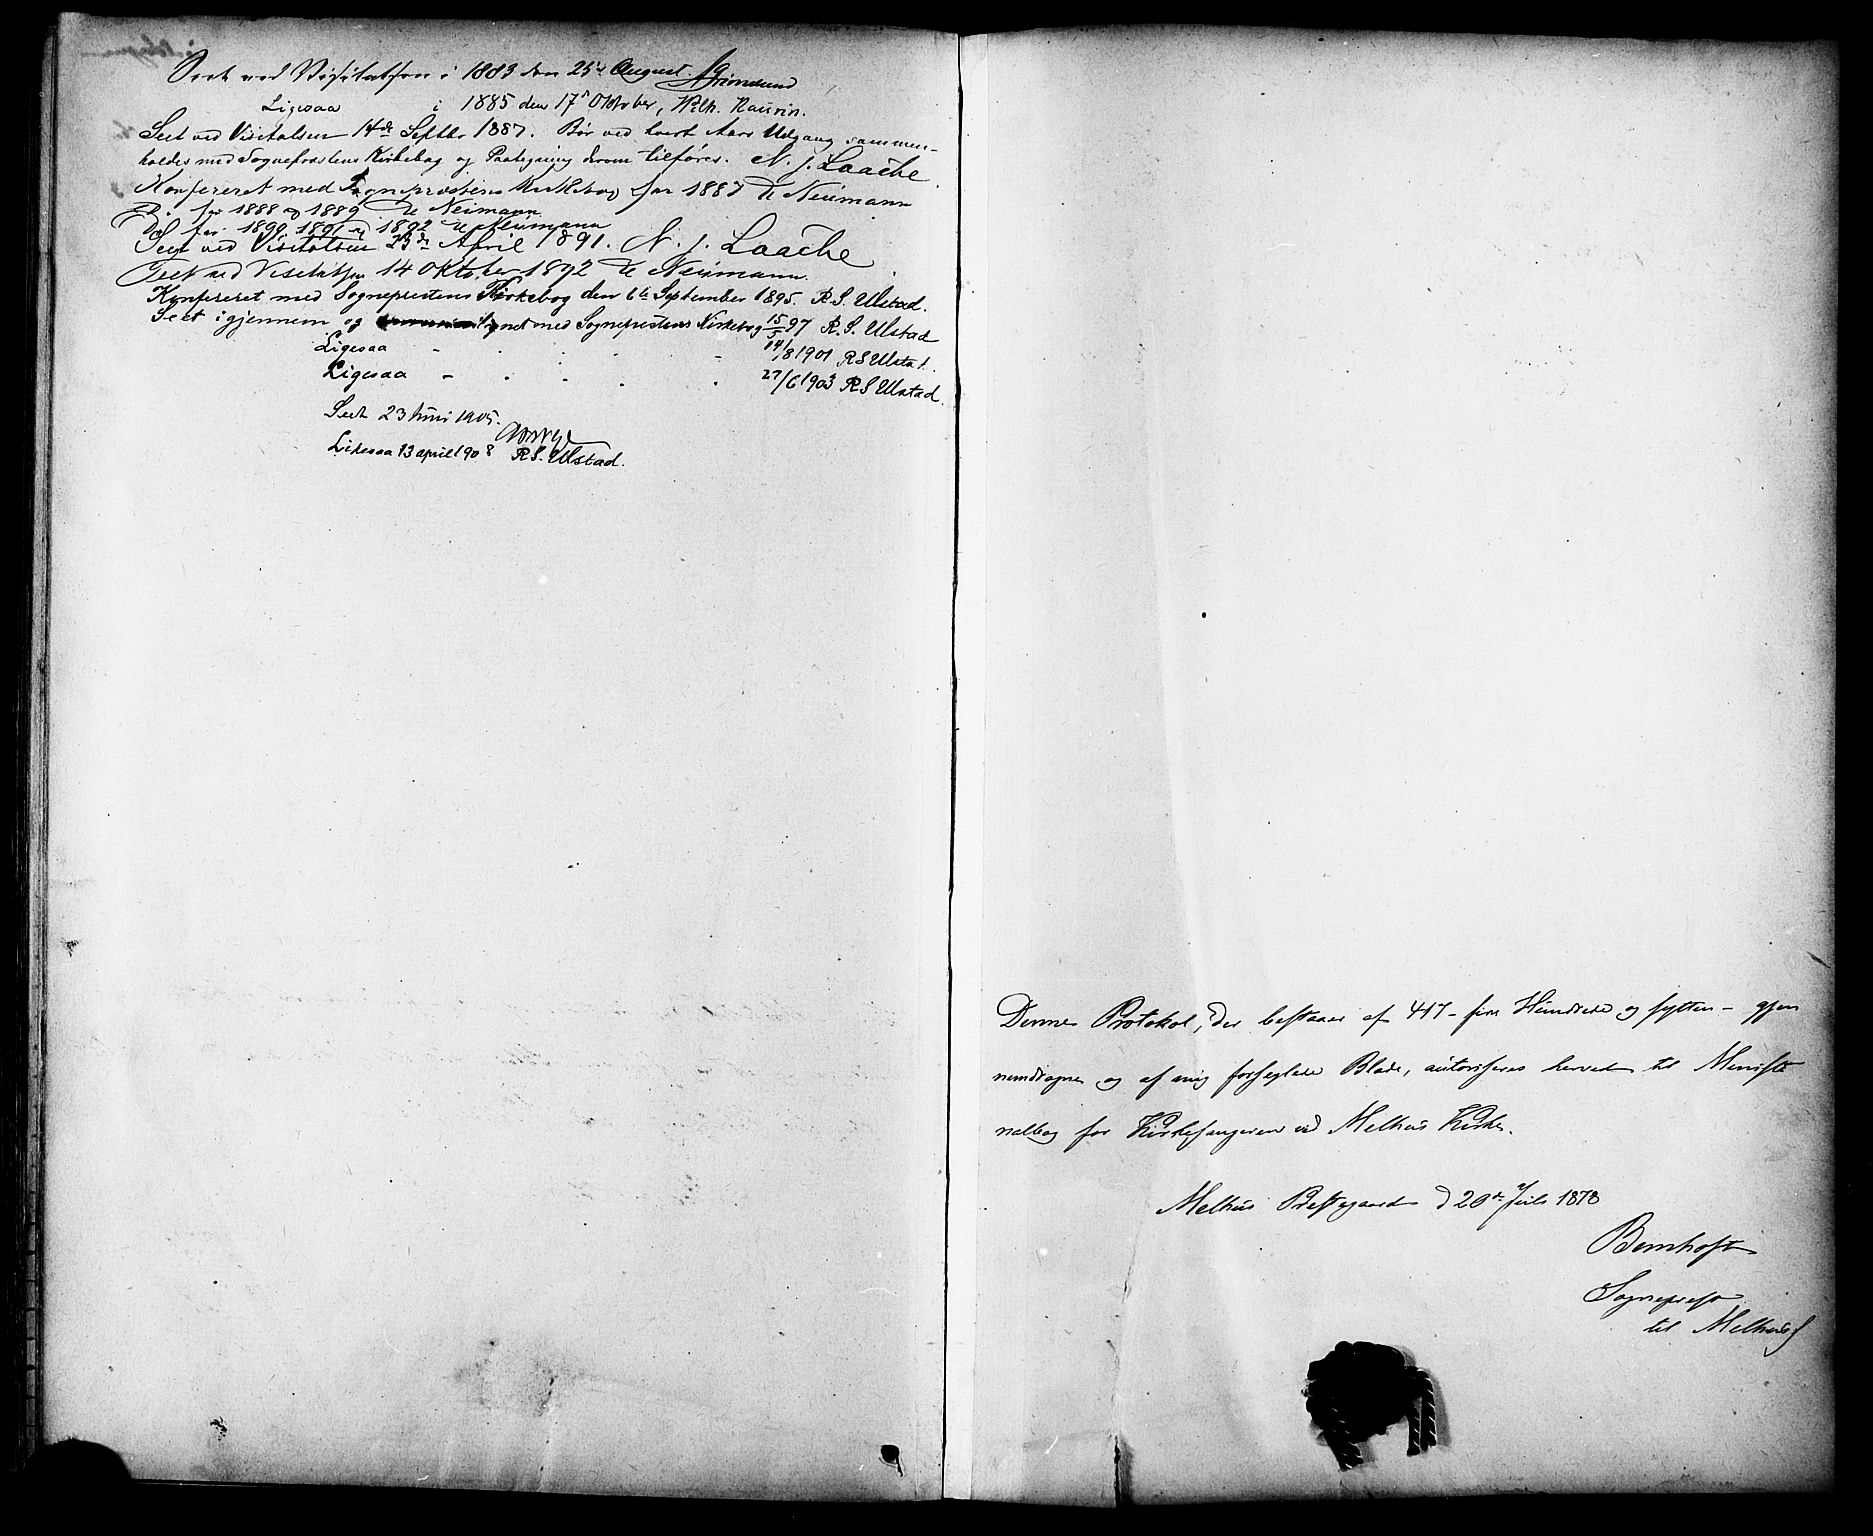 Seet ved Visitatsen i 1883 den 25de August. Grimelund
Ligesaa i 1885 den 17de Oktober, Wilh. Naurin.
Seet ved Visitatsen 14de Septbr 1887. Bør ved hvert Aars Udgang sammen-
holdes med Sogneprestens Kirkebog og Paategning derom tilføres. N. J. Laache
Konfereret med Sogneprestens Kirkebog for 1887 Neumann
Do. for 1888 og 1889 Neumann
Do for 1890, 1891 og 1892 Neumann
Seet ved Visitatsen 23de April 1891. N. J. Laache
Seet ved Visitatsen 14 Oktober 1892 Neumann.
Konfereret med Sogneprestens Kirkebog den 6te September 1895. R. S. Ulstad.
Seet igjennem og lignet med Sogneprestens Kirkebog 15/5 97 R. S. Ulstad
Ligesaa - 14/8 1901 R S Ulstad.
Ligesaa - 27/6 1903 R S Ulstad.
Seet 23 Juni 1905.
Likesaa 13 april 1908 R S. Ulstad.
Denne Protokol, der bestaaer af 417 - fire Hundrede og sytten - gjen
nemdragne og af mig forseglede Blade, autoriseres herved til Ministe
rialbog for Kirkesangeren ved Melhus Kirke.
Melhus Prestegaard d 20de Juli 1878
Bernhoft
Sogneprest
til Melhus